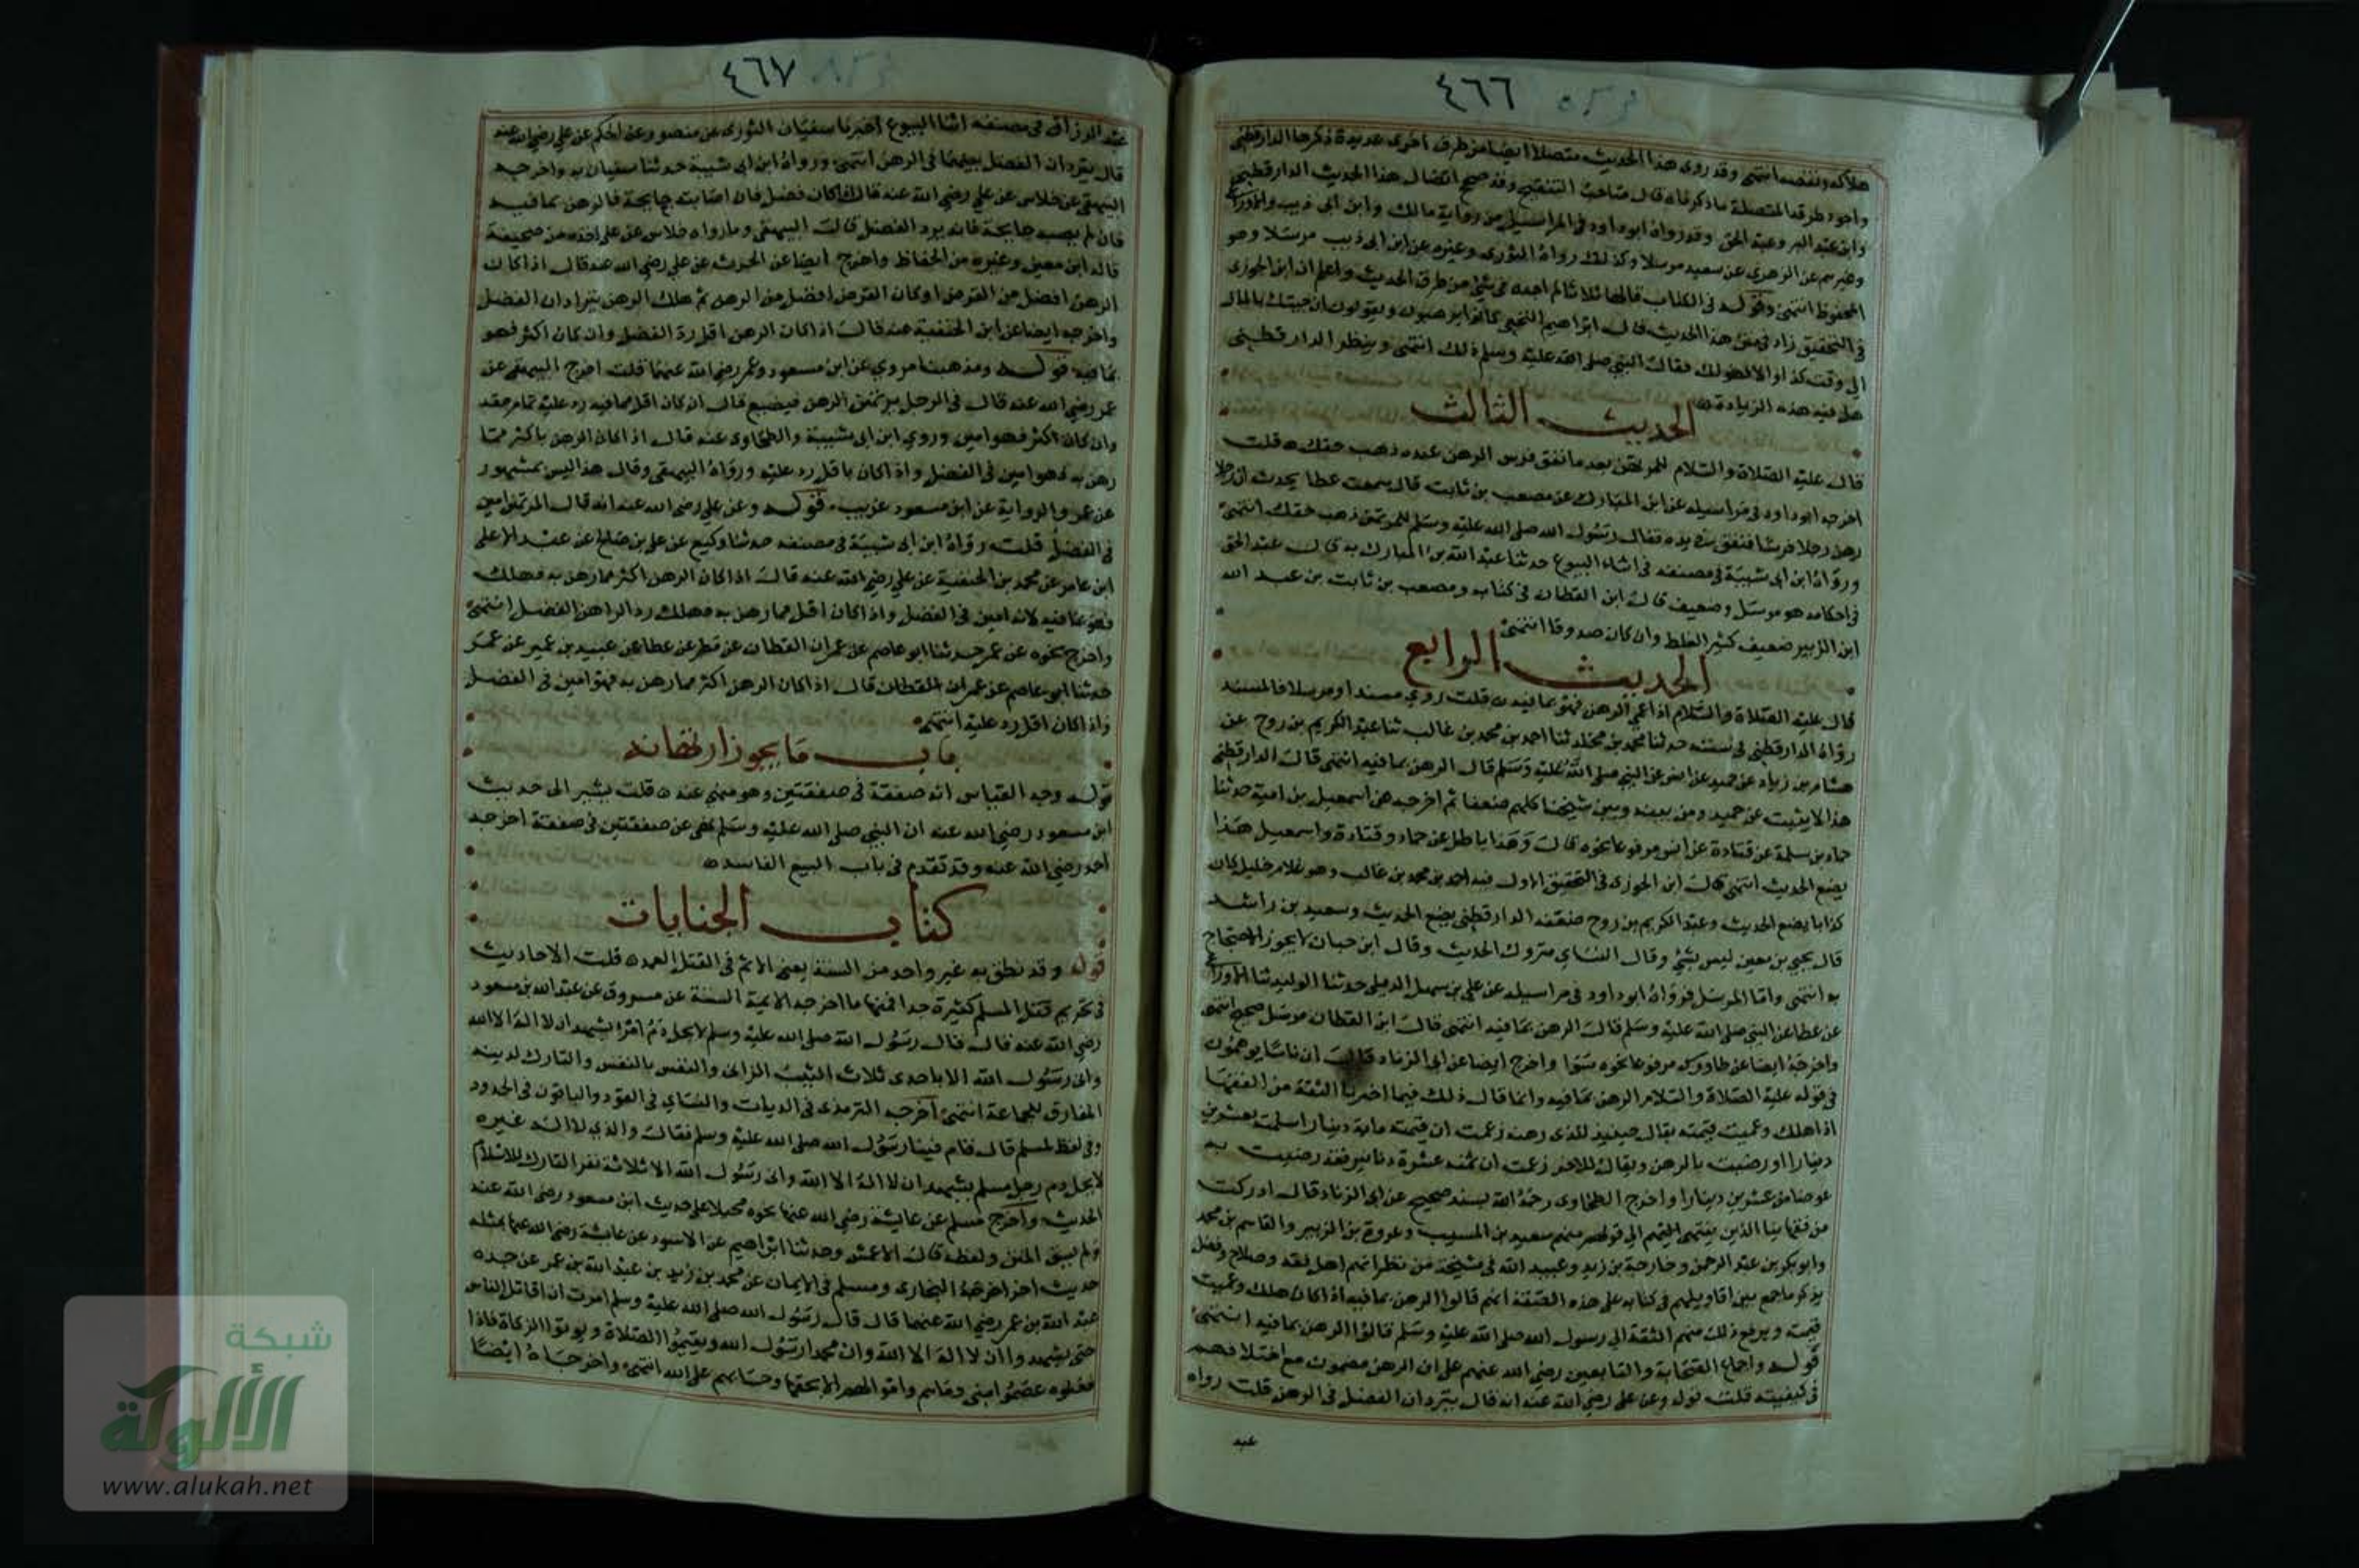 ٤٦٦
هلاكه ونقصه انتهى وقد روى هذا الحديث متصلا ايضا من طرق اخرى عديدة ذكرها الدارقطنى
واجود طرقه المتصلة ما ذكرناه قال صاحب التنقيح وقد صحح اتصال هذا الحديث الدارقطنى
وابن عبد البر وعبد الحق وقد رواه ابو داود فى المراسيل من رواية مالك وابن ابى ذيب والاوزاعى
وغيرهم عن الزهرى عن سعيد مرسلا وكذلك رواه الثورى وغيره عن ابن ابى ذيب مرسلا وهو
المحفوظ انتهى وقوله فى الكتاب قالها ثلاثا لم اجده فى شئ من طرق الحديث واعلم ان ابن الجوزى
فى التحقيق زاد فى متن هذا الحديث قال ابراهيم النخعى كانوا يرهنون ويقولون ان جيتك بالمال
الى وقت كذا والا فهو لك فقال النبى صلى الله عليه وسلم ذلك انتهى وينظر الدارقطنى
هل فيه هذه الزيادة
الحديث الثالث
قال عليه الصلاة والسلام للمرتهن بعد ما نفق فرس الرهن عنده ذهب حقك قلت
اخرجه ابو داود فى مراسيله عن ابن المبارك عن مصعب بن ثابت قال سمعت عطا يحدث ان رجلا
رهن رجلا فرسا فنفق فى يده فقال رسول الله صلى الله عليه وسلم للمرتهن ذهب حقك انتهى
ورواه ابن ابى شيبة فى مصنفه فى اثناء البيوع حدثنا عبد الله بن المبارك به قال عبد الحق
فى احكامه هو مرسل وضعيف قال ابن القطان فى كتابه ومصعب بن ثابت بن عبد الله
ابن الزبير ضعيف كثير الغلط وان كان صدوقا انتهى
الحديث الرابع
قال عليه الصلاة والسلام اذا عمى الرهن فهو بما فيه قلت روى مسندا ومرسلا فالمسند
رواه الدارقطنى فى سننه حدثنا محمد بن مخلد ثنا احمد بن محمد بن غالب ثنا عبد الكريم بن روح عن
هشام بن زياد عن حميد عن انس عن النبى صلى الله عليه وسلم قال الرهن بما فيه انتهى قال الدارقطنى
هذا لا يثبت عن حميد ومن بينه وبين شيخنا كلهم ضعفا ثم اخرجه عن اسمعيل بن امية حدثنا
حماد بن سلمة عن قتادة عن انس مرفوعا نحوه قال وهذا باطل عن حماد وقتادة واسمعيل هذا
يضع الحديث انتهى قال ابن الجوزى فى التحقيق الاول فيه احمد بن محمد بن غالب وهو غلام خليل كان
كذابا يضع الحديث وعبد الكريم بن روح ضعفه الدارقطنى يضع الحديث وسعيد بن راشد
قال يحيى بن معين ليس بشئ وقال النساى متروك الحديث وقال ابن حبان لا يجوز الاحتجاج
به انتهى واما المرسل فرواه ابو داود فى مراسيله عن على بن سهل الرملى حدثنا الوليد ثنا الاوزاعى
عن عطا عن النبى صلى الله عليه وسلم قال الرهن بما فيه انتهى قال ابن القطان مرسل صحيح انتهى
واخرجه ايضا عن طاووس مرفوعا نحوه سوا واخرج ايضا عن ابى الزناد قال ان ناسا يوهمون
فى قوله عليه الصلاة والسلام الرهن بما فيه وانما قال ذلك فيما اخبرنا الثقة من الفقها
اذا هلك وعميت قيمته يقال حينيذ للذى رهنه زعمت ان قيمته ماية دينار اسلمته بعشرين
دينارا ورضيت بالرهن ويقال للاخر زعمت ان ثمنه عشرة دنانير فقد رضيت به
عوضا من عشرين دينارا واخرج الطحاوى رحمه الله بسند صحيح عن ابى الزناد قال ادركت
من فقهاينا الذين ينتهى اليهم الى قولهم منهم سعيد بن المسيب وعروة بن الزبير والقاسم بن محمد
وابو بكر بن عبد الرحمن وخارجة بن زيد وعبيد الله فى مشيخة من نظرائهم اهل فقه وصلاح وفضل
يذكر ما جمع من اقاويلهم فى كتابه على هذه الصفة انهم قالوا الرهن بما فيه اذا كان هلك وعميت
قيمته ويرفع ذلك منهم الثقة الى رسول الله صلى الله عليه وسلم قالوا الرهن بما فيه انتهى
قوله واجماع الصحابة والتابعين رضى الله عنهم على ان الرهن مضمون مع اختلافهم
فى كيفيته قلت قوله وعن على رضى الله عنه انه قال يترادان الفضل فى الرهن قلت رواه
عبد
٤٦٧
عبد الرزاق فى مصنفه اثناء البيوع اخبرنا سفيان الثورى عن منصور عن الحكم عن على رضى الله عنه
قال يترادان الفضل بينهما فى الرهن انتهى ورواه ابن ابى شيبة حدثنا سفيان به واخرجه
البيهقى عن خلاس عن على رضى الله عنه قال اذا كان فضل فان اصابته جايحة فالرهن بما فيه
فان لم يصبه جايحة فانه يرد الفضل قال البيهقى وما رواه خلاس عن على اخذه من صحيفة
قاله ابن معين وغيره من الحفاظ واخرج ايضا عن الحرث عن على رضى الله عنه قال اذا كان
الرهن افضل من القرض او كان القرض افضل من الرهن ثم هلك الرهن يترادان الفضل
واخرجه ايضا عن ابن الحنفية عنه قال اذا كان الرهن اقل رد الفضل وان كان اكثر فهو
بما فيه قوله ومذهبنا مروى عن ابن مسعود وعمر رضى الله عنهما قلت اخرج البيهقى عن
عمر رضى الله عنه قال فى الرجل يرتهن الرهن فيضيع قال ان كان اقل مما فيه رد عليه تمام حقه
وان كان اكثر فهو امين وروى ابن ابى شيبة والطحاوى عنه قال اذا كان الرهن باكثر مما
رهن به فهو امين فى الفضل واذا كان باقل رد عليه ورواه البيهقى وقال هذا ليس بمشهور
عن عمر والرواية عن ابن مسعود غريب قوله وعن على رضى الله عنه انه قال المرتهن امين
فى الفضل قلت رواه ابن ابى شيبة فى مصنفه حدثنا وكيع عن على بن صالح عن عبد الاعلى
ابن عامر عن محمد بن الحنفية عن على رضى الله عنه قال اذا كان الرهن اكثر مما رهن به فهلك
فهو بما فيه لانه امين فى الفضل واذا كان اقل مما رهن به فهلك رد الراهن الفضل انتهى
واخرج نحوه عن عمر حدثنا ابو عاصم عن عمران القطان عن مطر عن عطا عن عبيد بن عمير عن عمر
حدثنا ابو عاصم عن عمران القطان قال اذا كان الرهن اكثر مما رهن به فهو امين فى الفضل
واذا كان اقل رد عليه انتهى
باب ما يجوز ارتهانه
قوله وجه القياس انه صفقة فى صفقتين وهو منهى عنه قلت يشير الى حديث
ابن مسعود رضى الله عنه ان النبى صلى الله عليه وسلم نهى عن صفقتين فى صفقة اخرجه
احمد رضى الله عنه وقد تقدم فى باب البيع الفاسد
كتاب الجنايات
قوله وقد نطق به غير واحد من السنة يعنى الاثم فى القتل العمد قلت الاحاديث
فى تحريم قتل المسلم كثيرة جدا فمنها ما اخرجه الايمة الستة عن مسروق عن عبد الله بن مسعود
رضى الله عنه قال قال رسول الله صلى الله عليه وسلم لا يحل دم امرئ يشهد ان لا اله الا الله
وانى رسول الله الا باحدى ثلاث الثيب الزانى والنفس بالنفس والتارك لدينه
المفارق للجماعة انتهى اخرجه الترمذى فى الديات والنساى فى القود والباقون فى الحدود
وفى لفظ لمسلم قال قام فينا رسول الله صلى الله عليه وسلم فقال والذى لا اله غيره
لا يحل دم رجل مسلم يشهد ان لا اله الا الله وانى رسول الله الا ثلاثة نفر التارك للاسلام
الحديث واخرج مسلم عن عايشة رضى الله عنها نحوه محيلا على حديث ابن مسعود رضى الله عنه
ولم يسق المتن ولفظه قال الاعمش وحدثنا ابراهيم عن الاسود عن عايشة رضى الله عنها بمثله
حديث اخر اخرجه البخارى ومسلم فى الايمان عن محمد بن زيد بن عبد الله بن عمر عن جده
عبد الله بن عمر رضى الله عنهما قال قال رسول الله صلى الله عليه وسلم امرت ان اقاتل الناس
حتى يشهدوا ان لا اله الا الله وان محمدا رسول الله ويقيموا الصلاة ويوتوا الزكاة فاذا
فعلوه عصموا منى دماءهم واموالهم الا بحقها وحسابهم على الله انتهى واخرجاه ايضا
شبكة
الألوكة
www.alukah.net